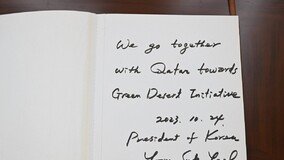 We go together
with Qatar towards
Green Desert Initiative
2023. 10. 24.
President of Korea